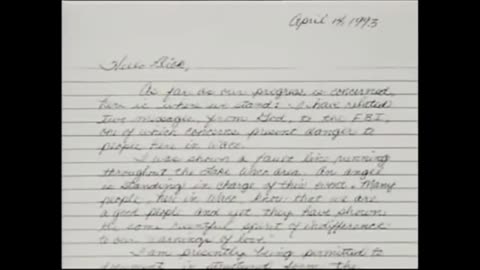 April 14, 1993
Hello Dick,
As far as our progress is concerned,
here is where we stand: I have related
two messages, from God, to the F.B.I.,
one of which concerns present danger to
people here in Waco.
I was shown a fault line running
throughout the Lake Waco area. An angel
is standing in charge of this event. Many
people, here in Waco, know that we are
a good people and yet they have shown
the same resentful spirit of indifference
to our "warnings of love".
I am presently being permitted to
document, in structured form, the